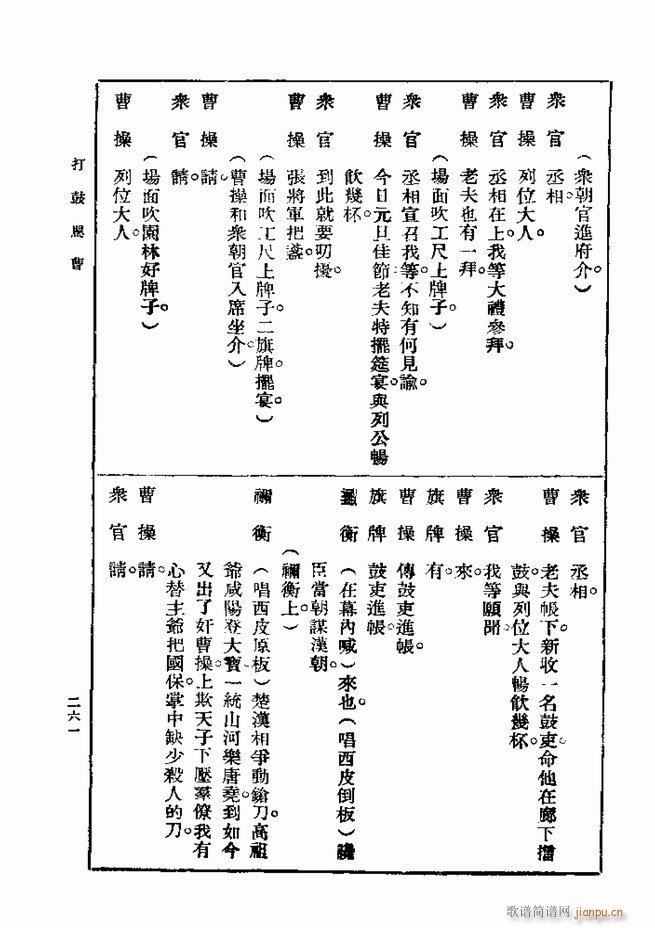 (衆朝官進府介。)
衆官 丞相。
曹操 列位大人。
衆官 丞相在上。我等大禮參拜。
曹操 老夫也有一拜。
(場面吹工尺上牌子。)
衆官 丞相宣召我等。不知有何見諭。
曹操 今日元旦佳節。老夫特擺筵宴。與列公暢
飲幾杯。
衆官 到此就要叨擾。
曹操 張將軍把盞。
(場面吹工尺上牌子。二旗牌擺宴。)
(曹操和衆朝官入席坐介。)
曹操 請。
衆官 請。
(場面吹園林好牌子。)
曹操 列位大人。
衆官 丞相。
曹操 老夫帳下新收一名鼓吏。命他在廊下擂
鼓。與列位大人暢飲幾杯。
衆官 我等願聞。
曹操 來。
旗牌 有。
曹操 傳鼓吏進帳。
旗牌 鼓吏進帳。
衡 (在幕內喊)來也。(唱西皮倒板)讒
臣當朝謀漢朝。
(禰衡上。)
禰衡 (唱西皮原板)楚漢相爭動鎗刀。高祖
爺咸陽登大寶。一統山河樂唐堯。到如今
又出了奸曹操。上欺天子下壓羣僚。我有
心替主爺把國保。掌中缺少殺人的刀。
曹操 請。
衆官 請。
打鼓罵曹
二六一
歌谱简谱网 jianpu.cn